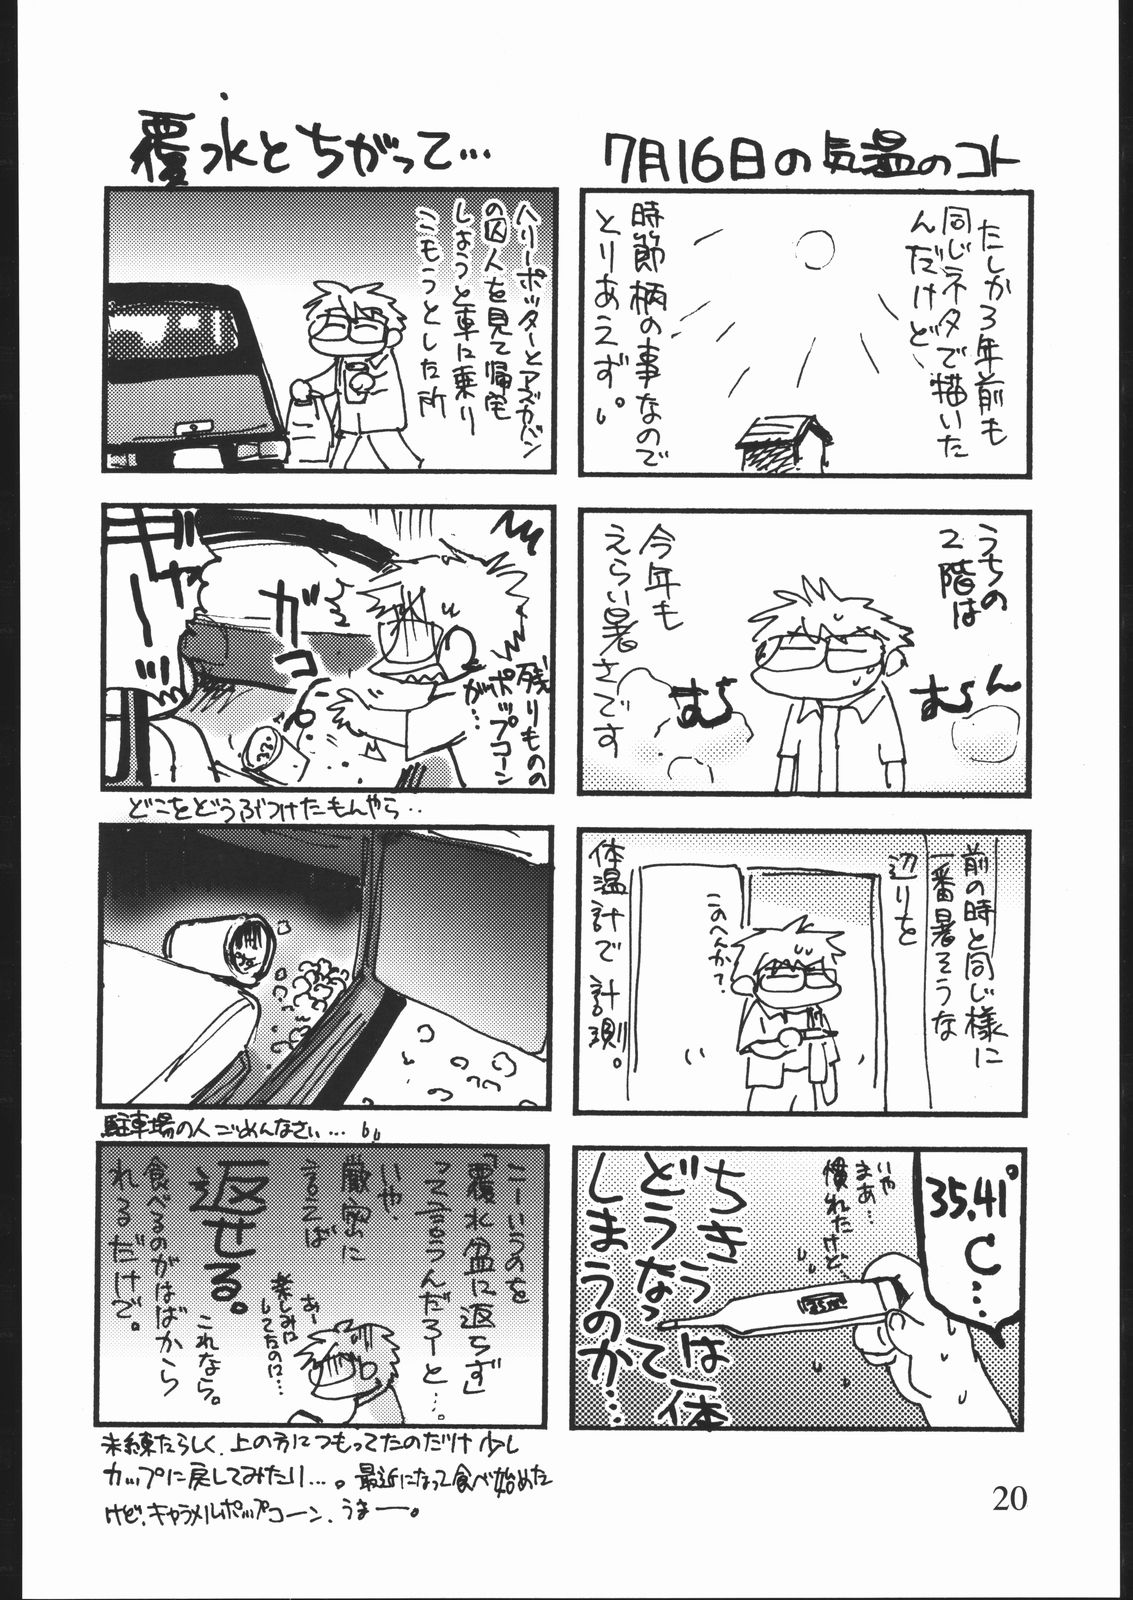 7月16日の気温のコト
たしか3年前も
同じネタで描いた
んだけど
時節柄の事なので
とりあえず。
うちの
2階は
むらーん
むら
今年も
えらい暑さです
前の時と同じ様に
一番暑そうな
辺りを
このへんか?
体温計で計測。
35.41°
C…
いや
まあ…
慣れたけど、
ちきうは一体
どうなって
しまうのか…
覆水とちがって…
ハリーポッターとアズカバン
の囚人を見て帰宅
しようと車に乗り
こもうとした所
残りものの
ポップコーン
が…
ガコ
ギャーッ
どこをどうぶつけたもんやら‥
駐車場の人ごめんなさい…
こーいうのを
「覆水盆に返らず」
って言うんだろーと…。
いや、
厳密に
言えば
返せる。
これなら。
食べるのがはばから
れるだけで。
あー
楽しみに
してたのに…
未練たらしく、上の方につもってたのだけ少し
カップに戻してみたり…。最近になって食べ始めた
けど、キャラメルポップコーン、うまー。
20